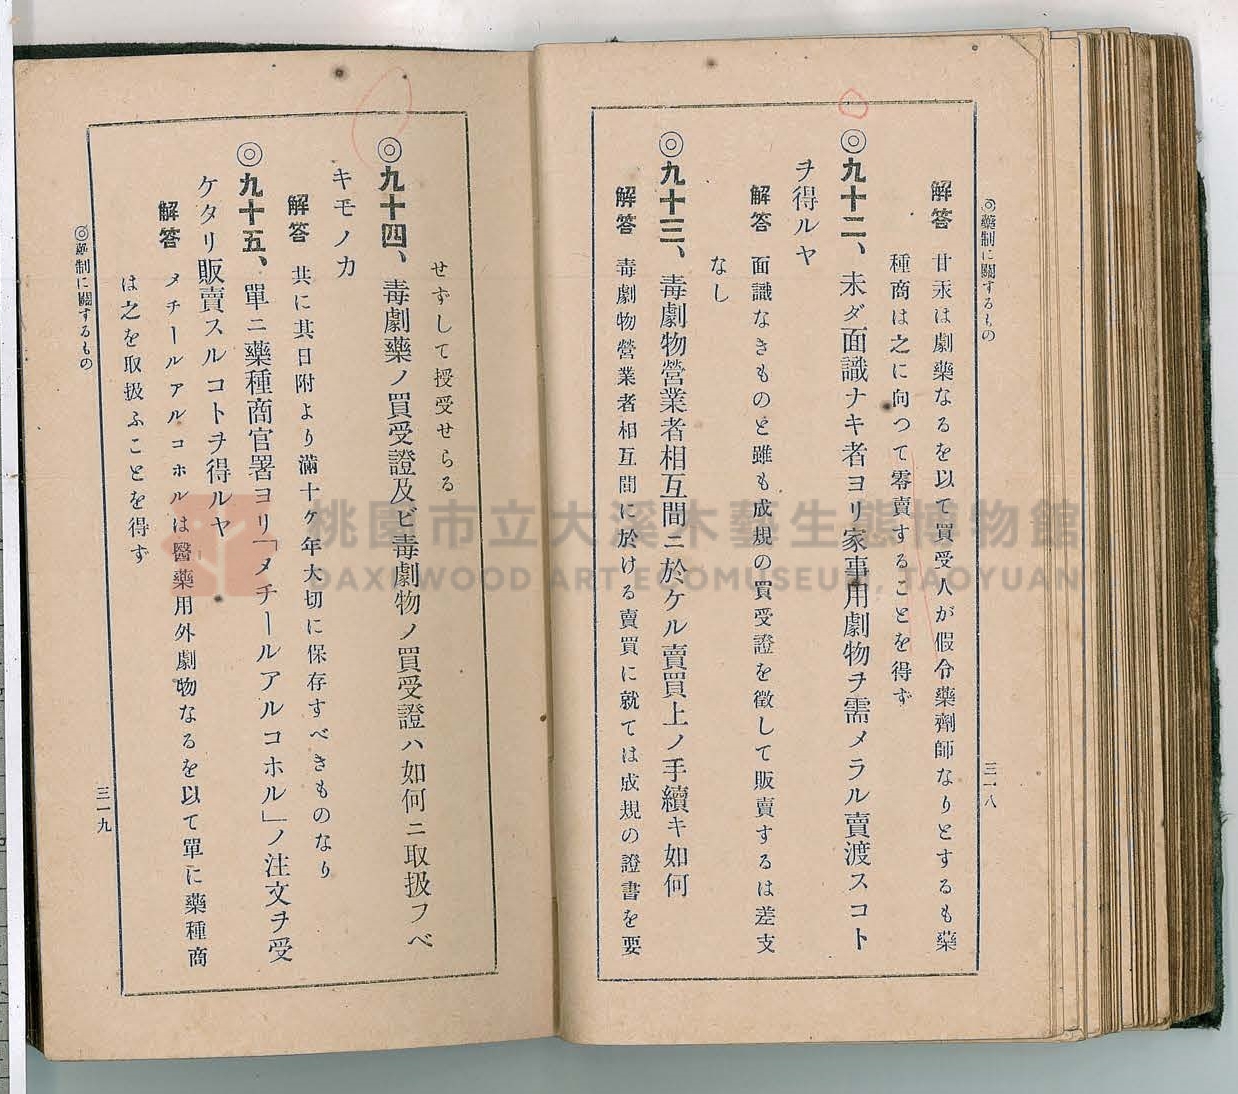 ◎藥制に關するもの
三一八
解答 甘汞は劇藥なるを以て買受人が假令藥劑師なりとするも藥
種商は之に向つて零賣することを得ず
◎九十二、未ダ面識ナキ者ヨリ家事用劇物ヲ需メラル賣渡スコト
ヲ得ルヤ
解答 面識なきものと雖も成規の買受證を徵して販賣するは差支
なし
◎九十三、毒劇物營業者相互間ニ於ケル賣買上ノ手續キ如何
解答 毒劇物營業者相互間に於ける賣買に就ては成規の證書を要
せずして授受せらる
◎九十四、毒劇藥ノ買受證及ビ毒劇物ノ買受證ハ如何ニ取扱フベ
キモノカ
解答 共に其日附より滿十ケ年大切に保存すべきものなり
◎九十五、單ニ藥種商官署ヨリ「メチールアルコホル」ノ注文ヲ受
ケタリ販賣スルコトヲ得ルヤ
解答 メチールアルコホルは醫藥用外劇物なるを以て單に藥種商
は之を取扱ふことを得ず
◎藥制に關するもの
三一九
桃園市立大溪木藝生態博物館
DAXI WOOD ART ECOMUSEUM, TAOYUAN